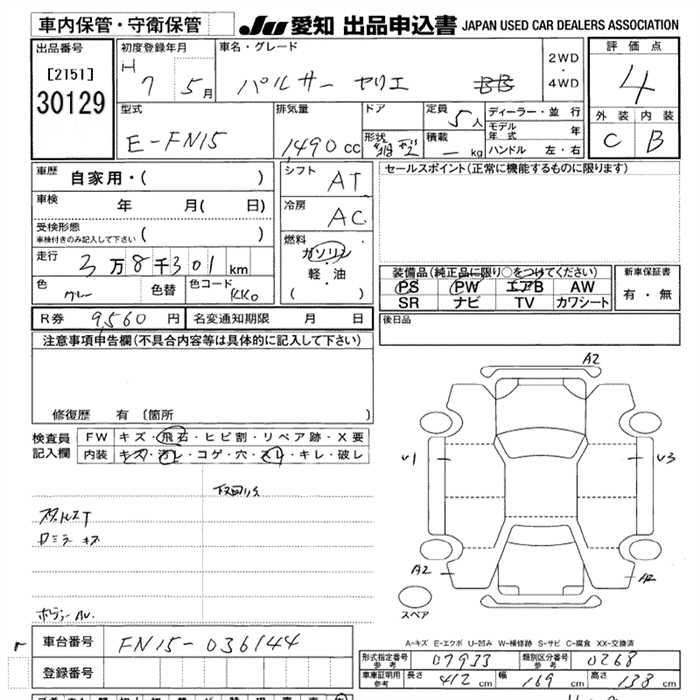 車内保管・守衛保管
JU 愛知 出品申込書 JAPAN USED CAR DEALERS ASSOCIATION
出品番号
[2151]
30129
初度登録年月
H 7 5月
車名・グレード
パルサー セリエ
2WD
・
4WD
評価点
4
外装 内装
C B
型式
E-FN15
排気量
1,490cc
ドア
形状
定員
5人
積載
－kg
ディーラー・並行
モデル年式 年
ハンドル 左・右
車歴
自家用・( )
車検
年 月( 日)
受検形態
車検付きのみ記入して下さい ( )
走行
3万8千301km
色
グレー
色替
色コード
KK0
シフト
AT
冷房
AC
燃料
ガソリン
・
軽・油
( ・ )
セールスポイント(正常に機能するものに限ります)
装備品(純正品に限り○をつけてください)
PS PW エアB AW
SR ナビ TV カワシート
新車保証書
有・無
後日品
R券 9,560円 名変通知期限 月 日
注意事項申告欄(不具合内容等は具体的に記入して下さい)
修復歴 有 〔箇所
検査員
記入欄
FW キズ・飛石・ヒビ割・リペア跡・X要
内装 キズ・汚レ・コゲ・穴・スレ・キレ・破レ
下回りサ
スタッドレスT
ミラーキズ
A2
U1
U3
A2
スペア
A-キズ E-エクボ U-凹み W-補修跡 S-サビ C-腐食 XX-交換済
車台番号 FN15-036144
登録番号
形式指定番号
参考
07933
類別区分番号
参考
0268
車庫証明用
参考
長さ 412cm 幅 169cm 高さ 138cm